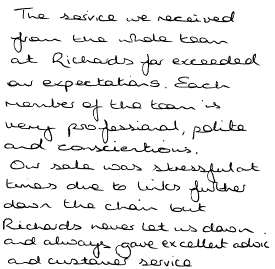 The service we received
from the whole team
at Richards far exceeded
our expectations. Each
member of the team is
very professional, polite
and conscientious.
Our sale was stressful at
times due to links further
down the chain but
Richards never let us down.
and always gave excellent advice
and customer service